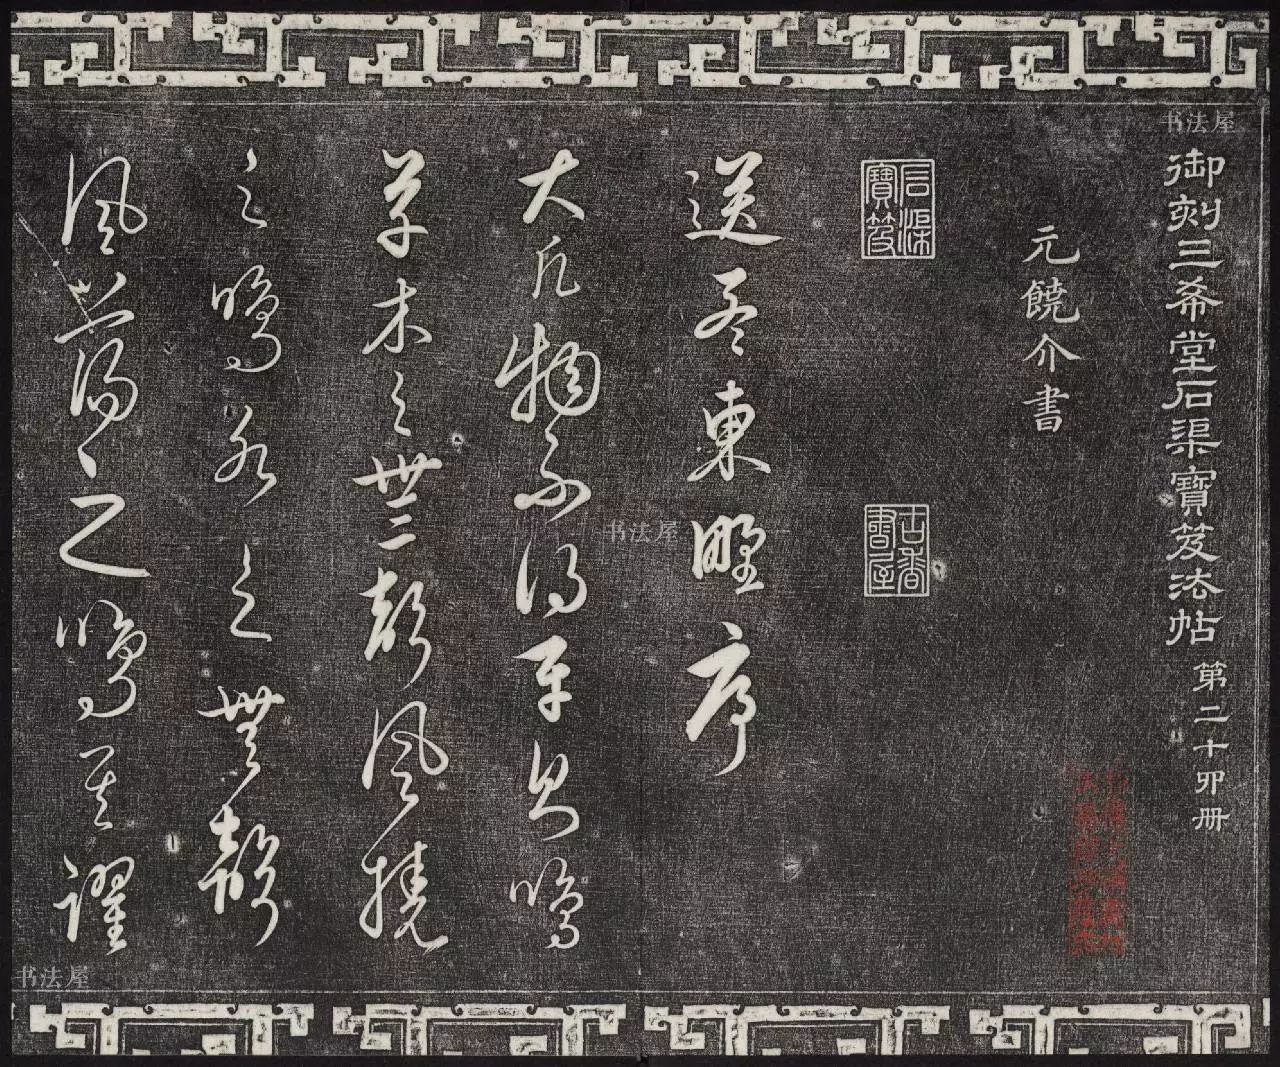 书法屋
御刻三希堂石渠寶笈法帖 第二十卯册
元饒介書
石渠寶笈
古香書屋
送孟東野序
书法屋
大凡物不得平則鳴
草木之無聲風撓
之鳴水之無聲
風蕩之鳴其躍
书法屋